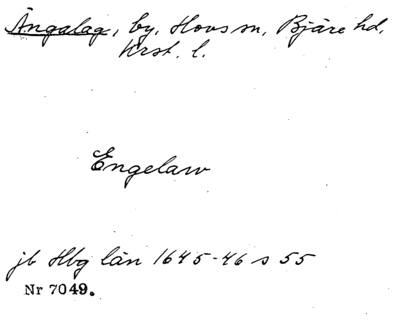 Ängalag, by, Hovs sn, Bjäre hd,
Krst. l.
Engelaw
jb Hbg län 1645-46 s 55
Nr 7049.